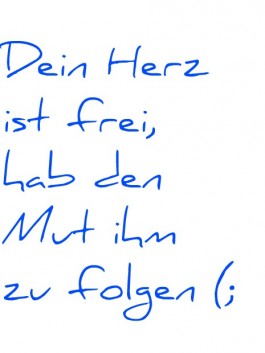 Dein Herz
ist frei,
hab den
Mut ihm
zu folgen (;